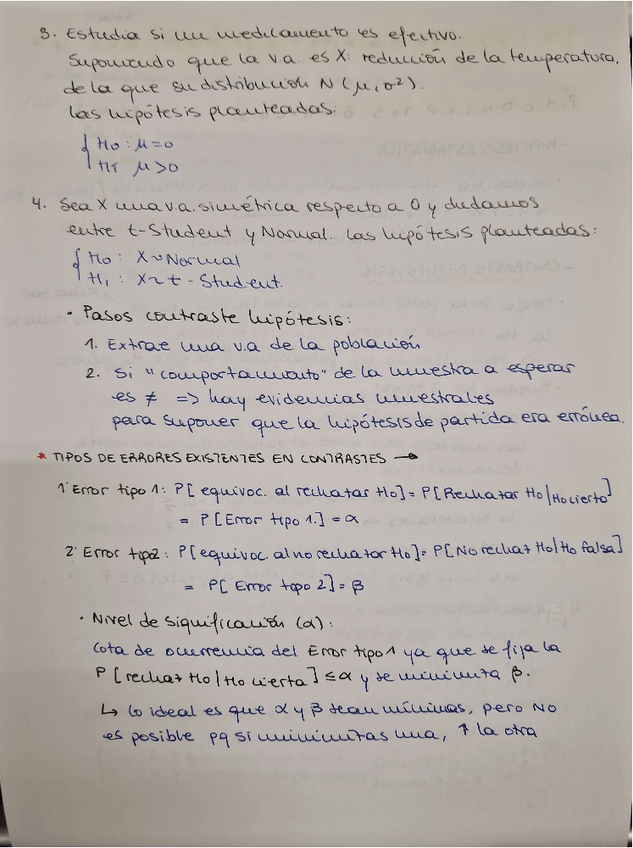 3. Estudia si un medicamento es efectivo.
Suponiendo que la v.a. es X: redución de la temperatura,
de la que su distribución N(μ,σ²).
Las hipótesis planteadas:
{ H0 : μ=0
H1 μ>0
4. Sea X una v.a. simétrica respecto a 0 y dudamos
entre t-Student y Normal. Las hipótesis planteadas:
{ H0 : X~Normal
H1 : X~ t-Student.
• Pasos contraste hipótesis:
1. Extrae una v.a de la población
2. Si "comportamiento" de la muestra a esperar
es ≠ => hay evidencias muestrales
para suponer que la hipótesis de partida era errónea.
* TIPOS DE ERRORES EXISTENTES EN CONTRASTES →
1' Error tipo 1: P[equivoc. al rechazar H0] = P[Rechazar H0/H0 cierto]
= P[Error tipo 1.] = α
2' Error tipo2: P[equivoc. al no rechazar H0] = P[No rechaz H0/H0 falsa]
= P[Error tipo 2] = β
• Nivel de significación (α):
Cota de ocurrencia del Error tipo 1 ya que se fija la
P[rechaz H0/H0 cierta] ≤ α y se minimiza β.
↳ Lo ideal es que α y β sean mínimas, pero NO
es posible pq si minimizas una, ↑ la otra